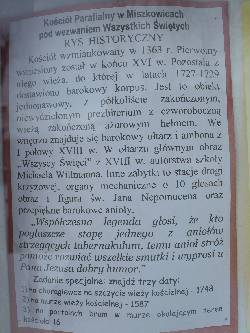 Kościół Parafialny w Miszkowicach
pod wezwaniem Wszystkich Świętych
RYS HISTORYCZNY
Kościół wzmiankowany w 1363 r. Pierwotny
wzniesiony został w końcu XVI w. Pozostała z
niego wieża, do której w latach 1727-1729
dostawiono barokowy korpus. Jest to obiekt
jednonawowy, z półkoliście zakończonym,
niewydzielonym prezbiterium i czworoboczną
wieżą zakończoną ażurowym hełmem. We
wnętrzu znajduje się barokowy ołtarz i ambona z
I połowy XVIII w. W ołtarzu głównym obraz
„Wszyscy Święci" z XVIII w. autorstwa szkoły
Michaela Willmanna. Inne zabytki to stacje drogi
krzyżowej, organy mechaniczne o 10 głosach
obraz i figura św. Jana Nepomucena oraz
przepiękne barokowe anioły.
„Współczesna legenda głosi, że kto
pogłaszcze stopę jednego z aniołów
strzegących tabernakulum, temu anioł stróż
pomoże rozwiać wszelkie smutki i wyprosi u
Pana Jezusa dobry humor."
Zadanie specjalne: znajdź trzy daty:
1) na chorągiewce na szczycie wieży kościelnej - 1748
2) na murze wieży kościelnej - 1587
3) na portalach bram w murze okalającym teren
kościoła 16